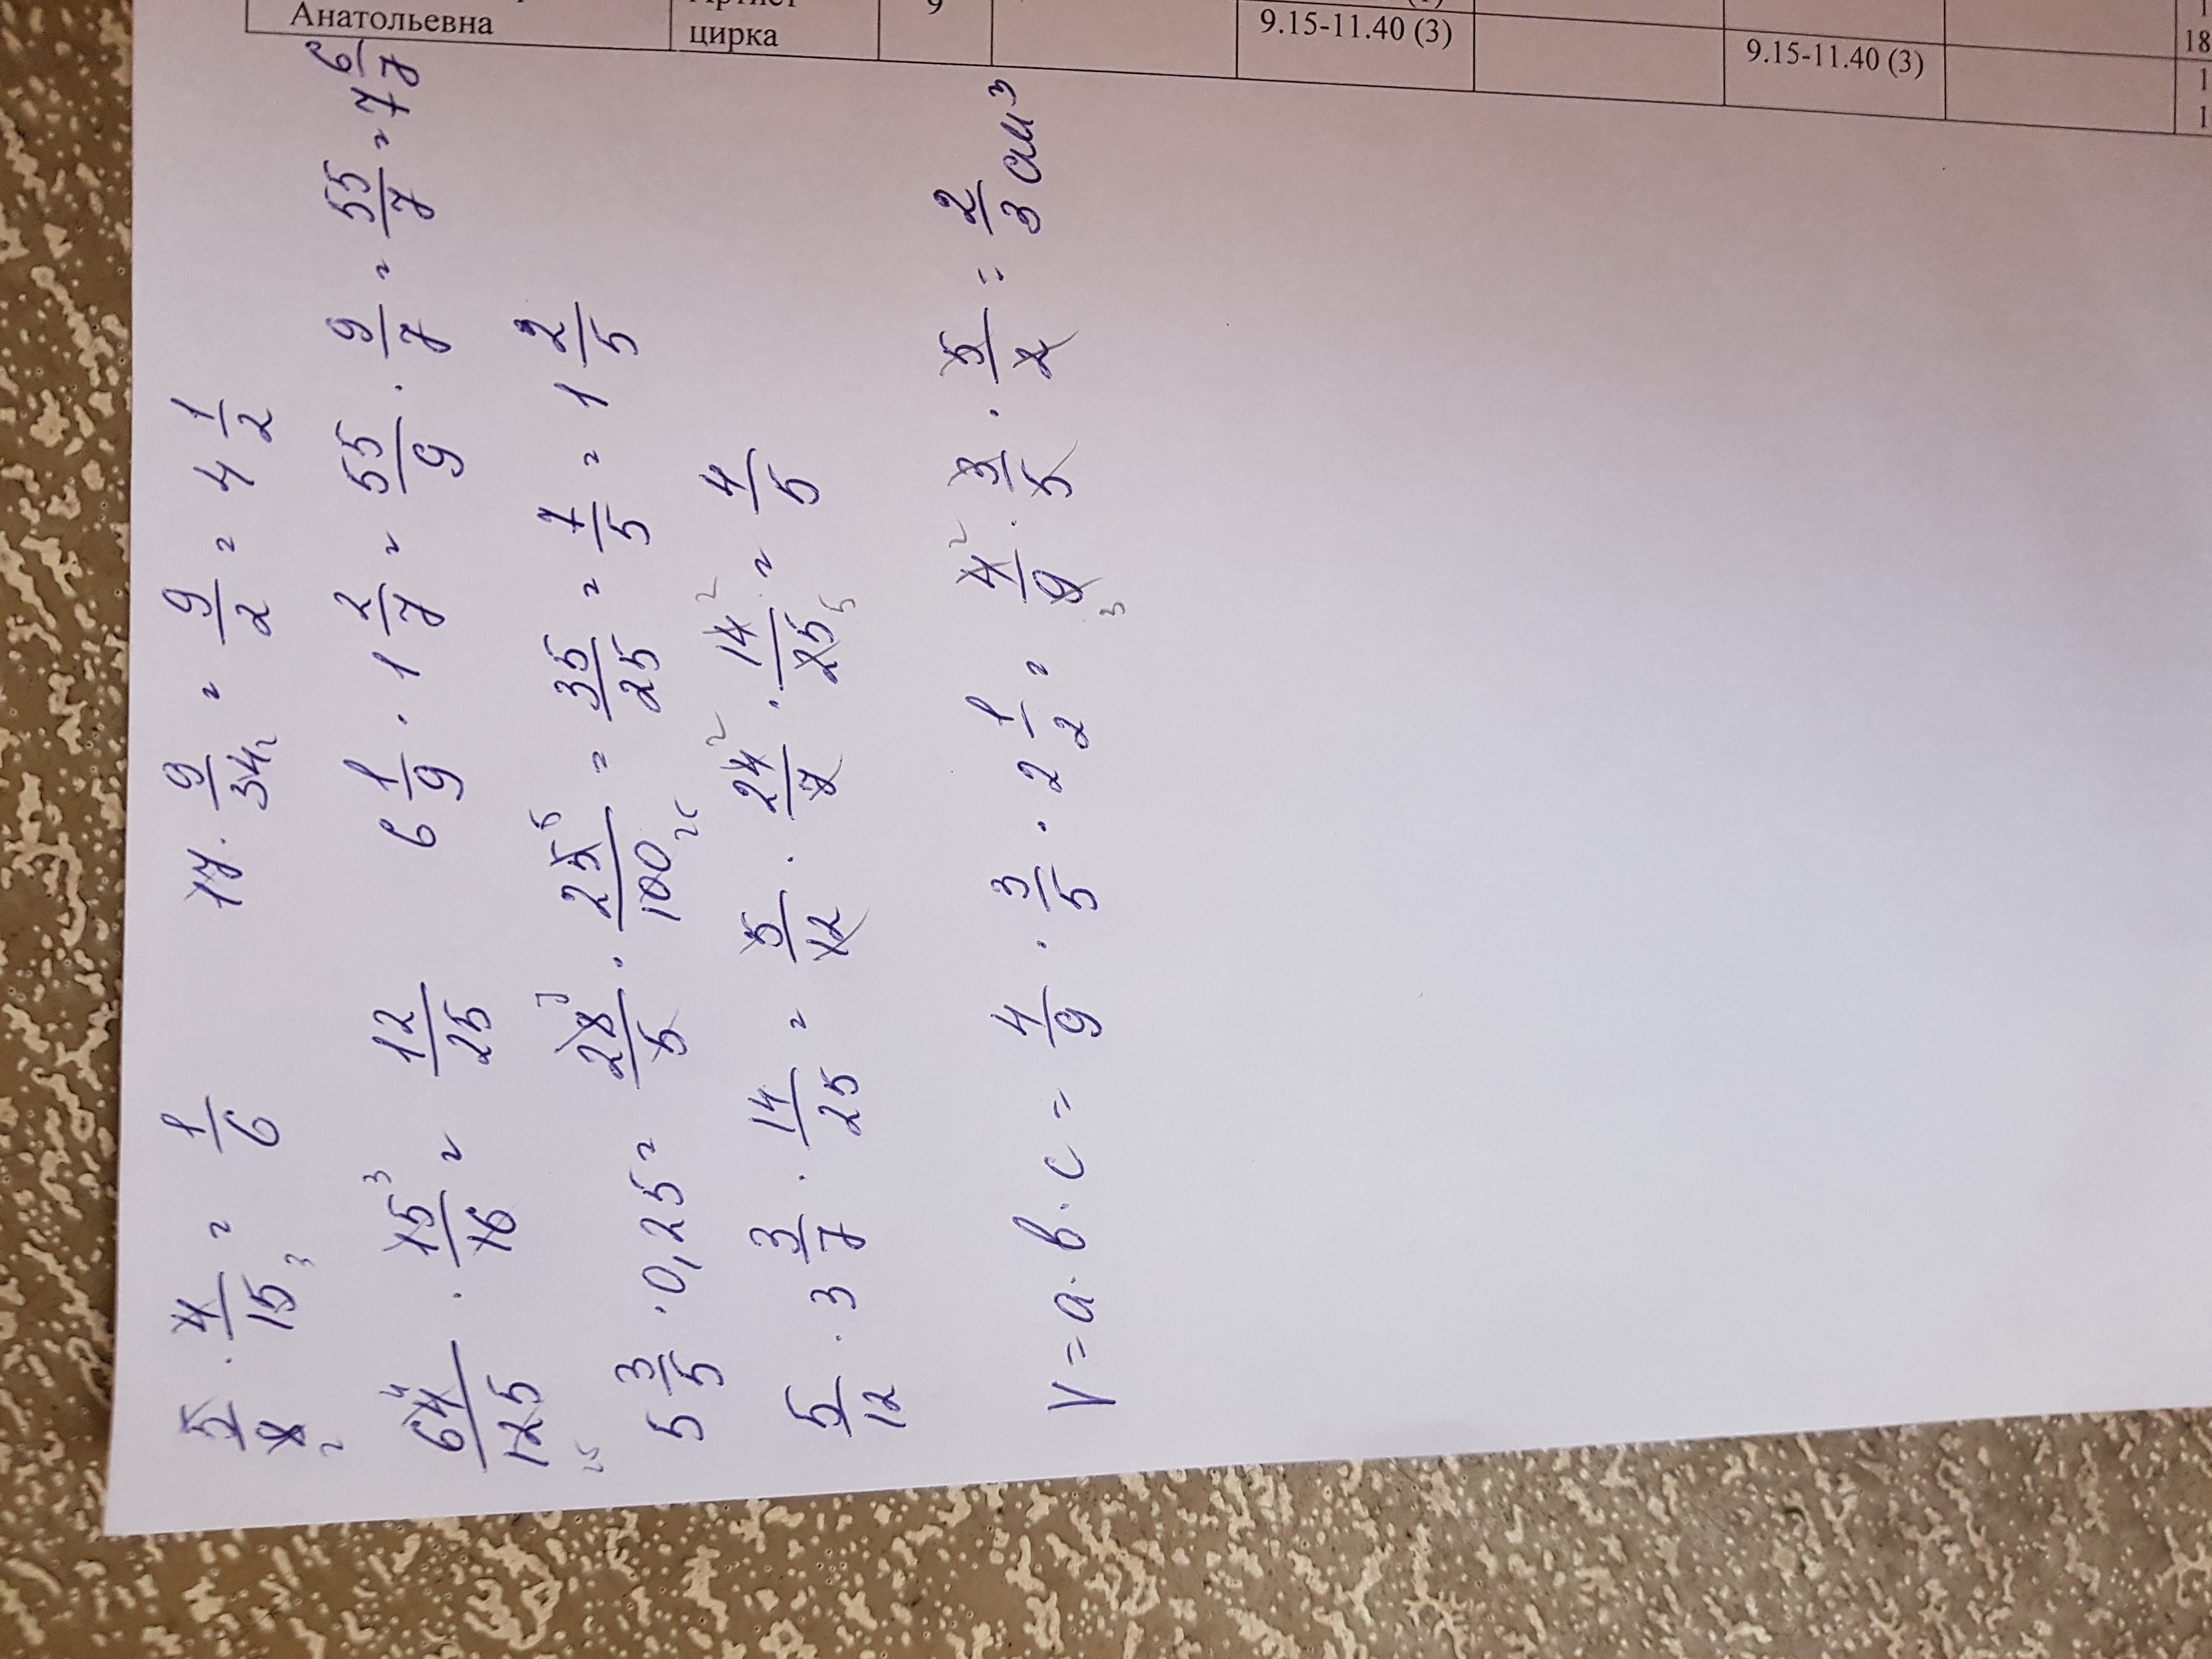 Анатольевна цирка 9 9.15-11.40 (3) 9.15-11.40 (3) 18
5/8 2 · 4/15 3 = 1/6 17 · 9/34 2 = 9/2 = 4 1/2
64 4/125 25 · 15 3/16 = 12/25 6 1/9 · 1 2/7 = 55/9 · 9/7 = 55/7 = 7 6/7
5 3/5 · 0,25 = 28/5 · 25 5/100 = 35/25 = 7/5 = 1 2/5
5/12 · 3 3/7 · 14/25 = 5/12 · 24 2/7 · 14 2/25 5 = 4/5
V = a · b · c = 4/9 · 3/5 · 2 1/2 = 4 2/9 3 · 3/5 · 5/2 = 2/3 см³